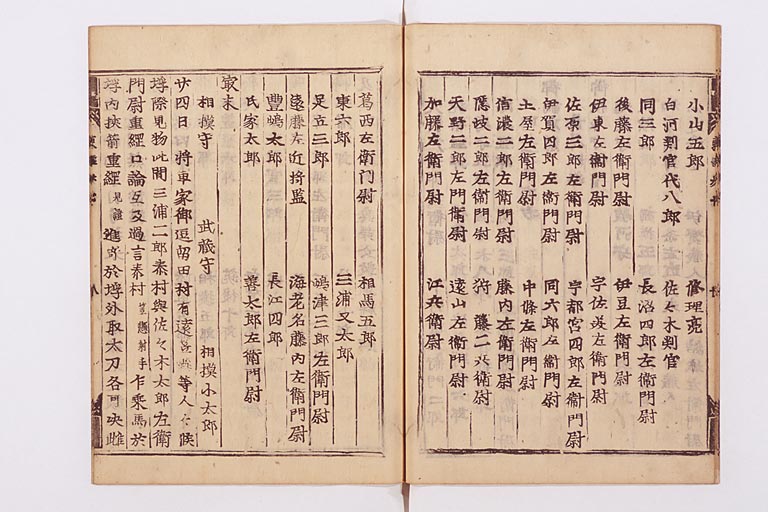 小山五郎　修理亮
白河判官代八郎　佐々木判官
同三郎　長沼四郎左衛門尉
後藤左衛門尉　伊豆左衛門尉
伊東左衛門尉　宇佐美左衛門尉
佐原三郎左衛門尉　宇都宮四郎左衛門尉
伊賀四郎左衛門尉　同六郎左衛門尉
土屋左衛門尉　中條左衛門尉
信濃二郎左衛門尉　藤内左衛門尉
隠岐二郎左衛門尉　弥藤二兵衛尉
天野二郎左門衛尉　遠山左衛門尉
加藤左衛門尉　江兵衛尉
葛西左衛门尉　相馬五郎
東六郎　三浦又太郎
足立三郎　嶋津三郎左衛門尉
遠藤左近将監　海老名藤内左衛門尉
豊嶋太郎　長江四郎
氏家太郎　善太郎左衛門尉
最末
相摸守　武蔵守　相摸小太郎
廿四日　将軍家御逗留田村有遠笠懸等人々候
埒際見物此間三浦二郎泰村與佐々木太郎左衛
門尉重經口論互及過言泰村笠懸射手乍乗馬於
埒内挟箭重經見證進寄於埒外取太刀各閗决雌